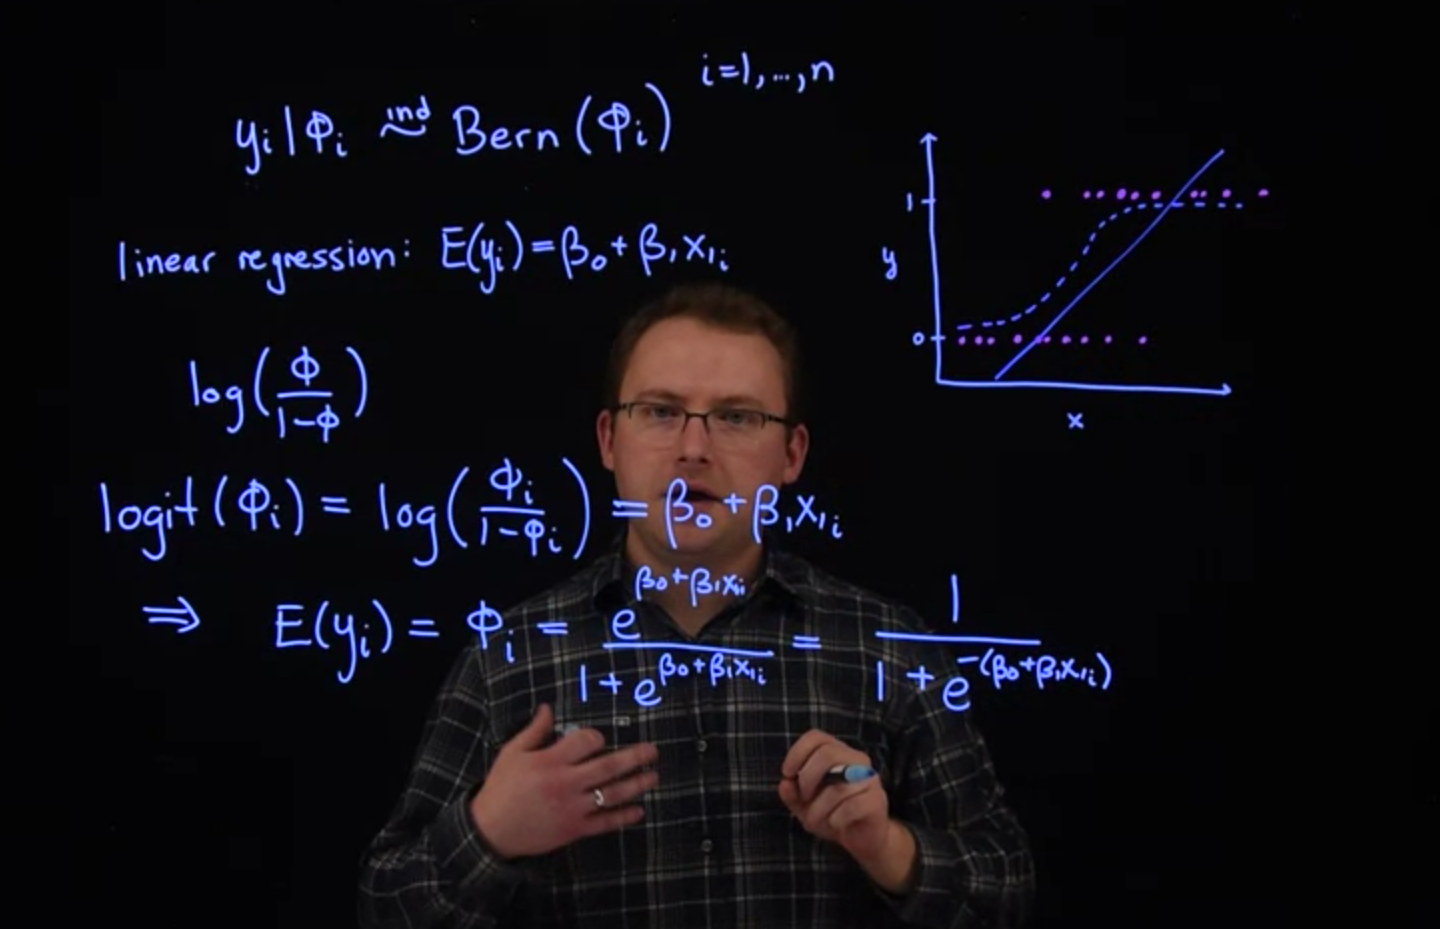 i=1,...,n
yᵢ|Φᵢ ~ind Bern(Φᵢ)
linear regression: E(yᵢ)=β₀+β₁x₁ᵢ
log(Φ/(1-Φ))
logit(Φᵢ) = log(Φᵢ/(1-Φᵢ)) = β₀+β₁x₁ᵢ
⇒ E(yᵢ) = Φᵢ = e^(β₀+β₁x₁ᵢ)/(1+e^(β₀+β₁x₁ᵢ)) = 1/(1+e^(-(β₀+β₁x₁ᵢ)))
1
y
0
x